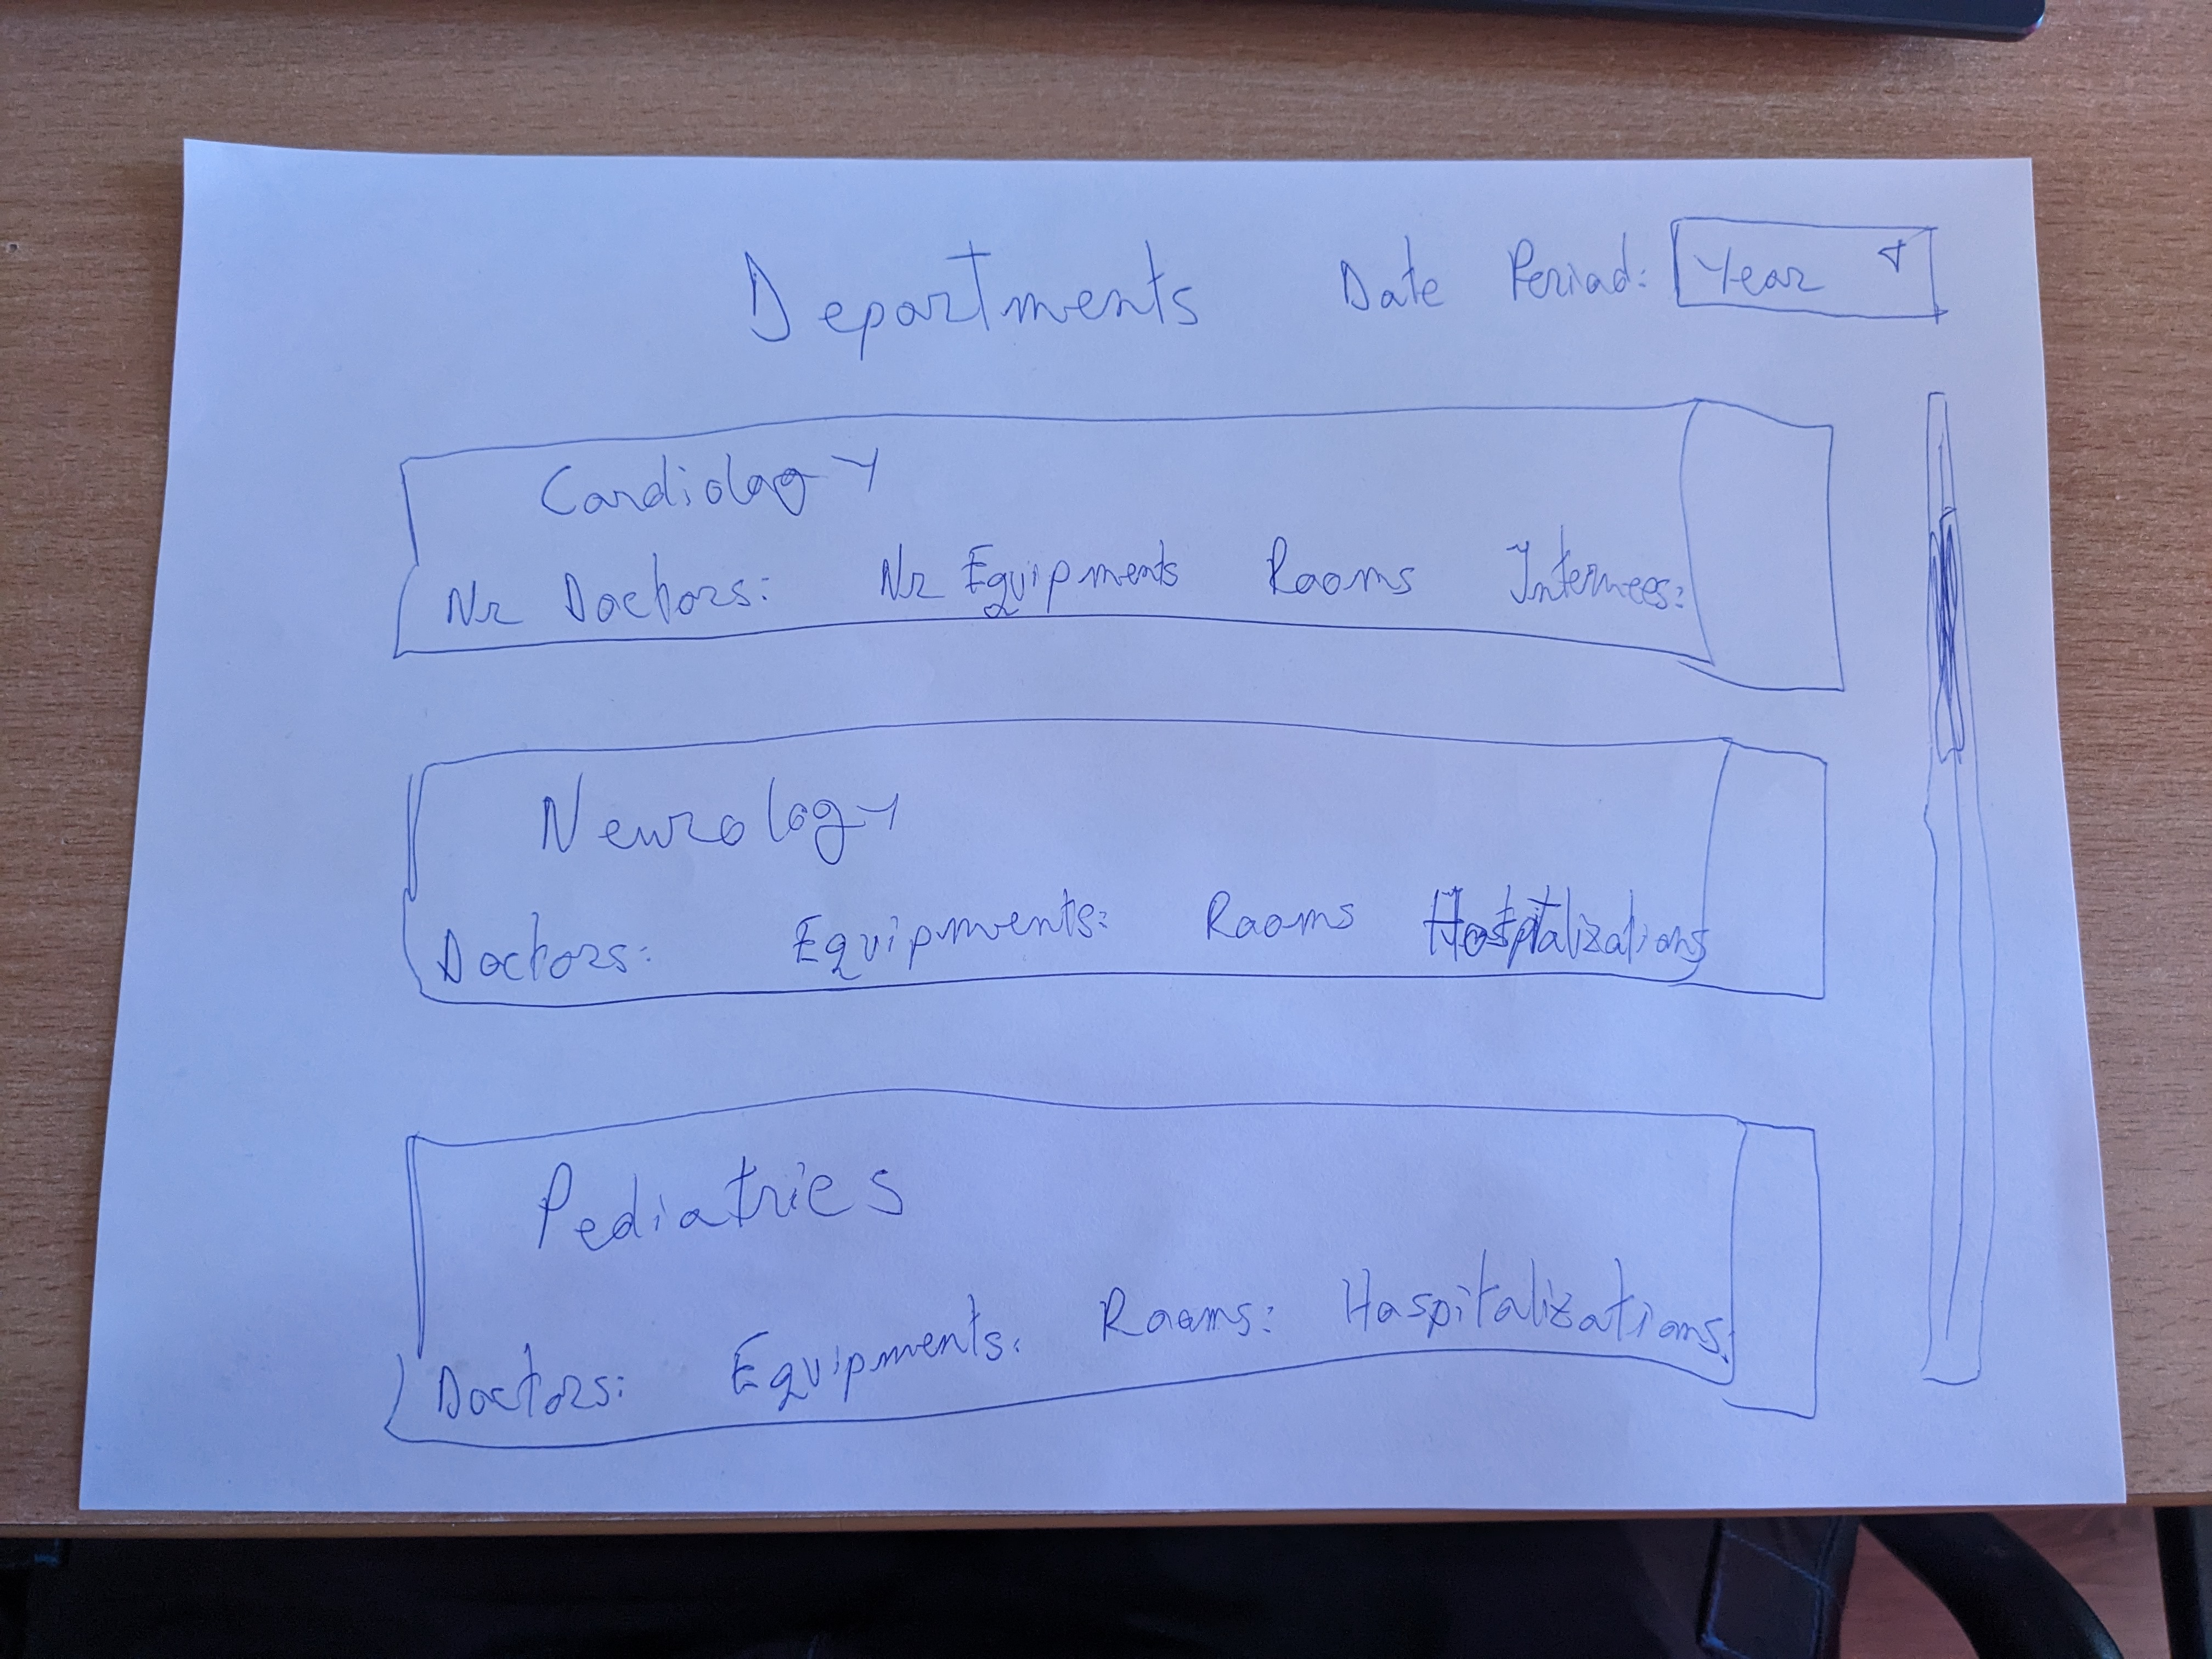 Departments Date Period: Year
Cardiology
Nr Doctors: Nr Equipments Rooms Internees:
Neurology
Doctors: Equipments: Rooms Hospitalizations
Pediatrics
Doctors: Equipments: Rooms: Hospitalizations: